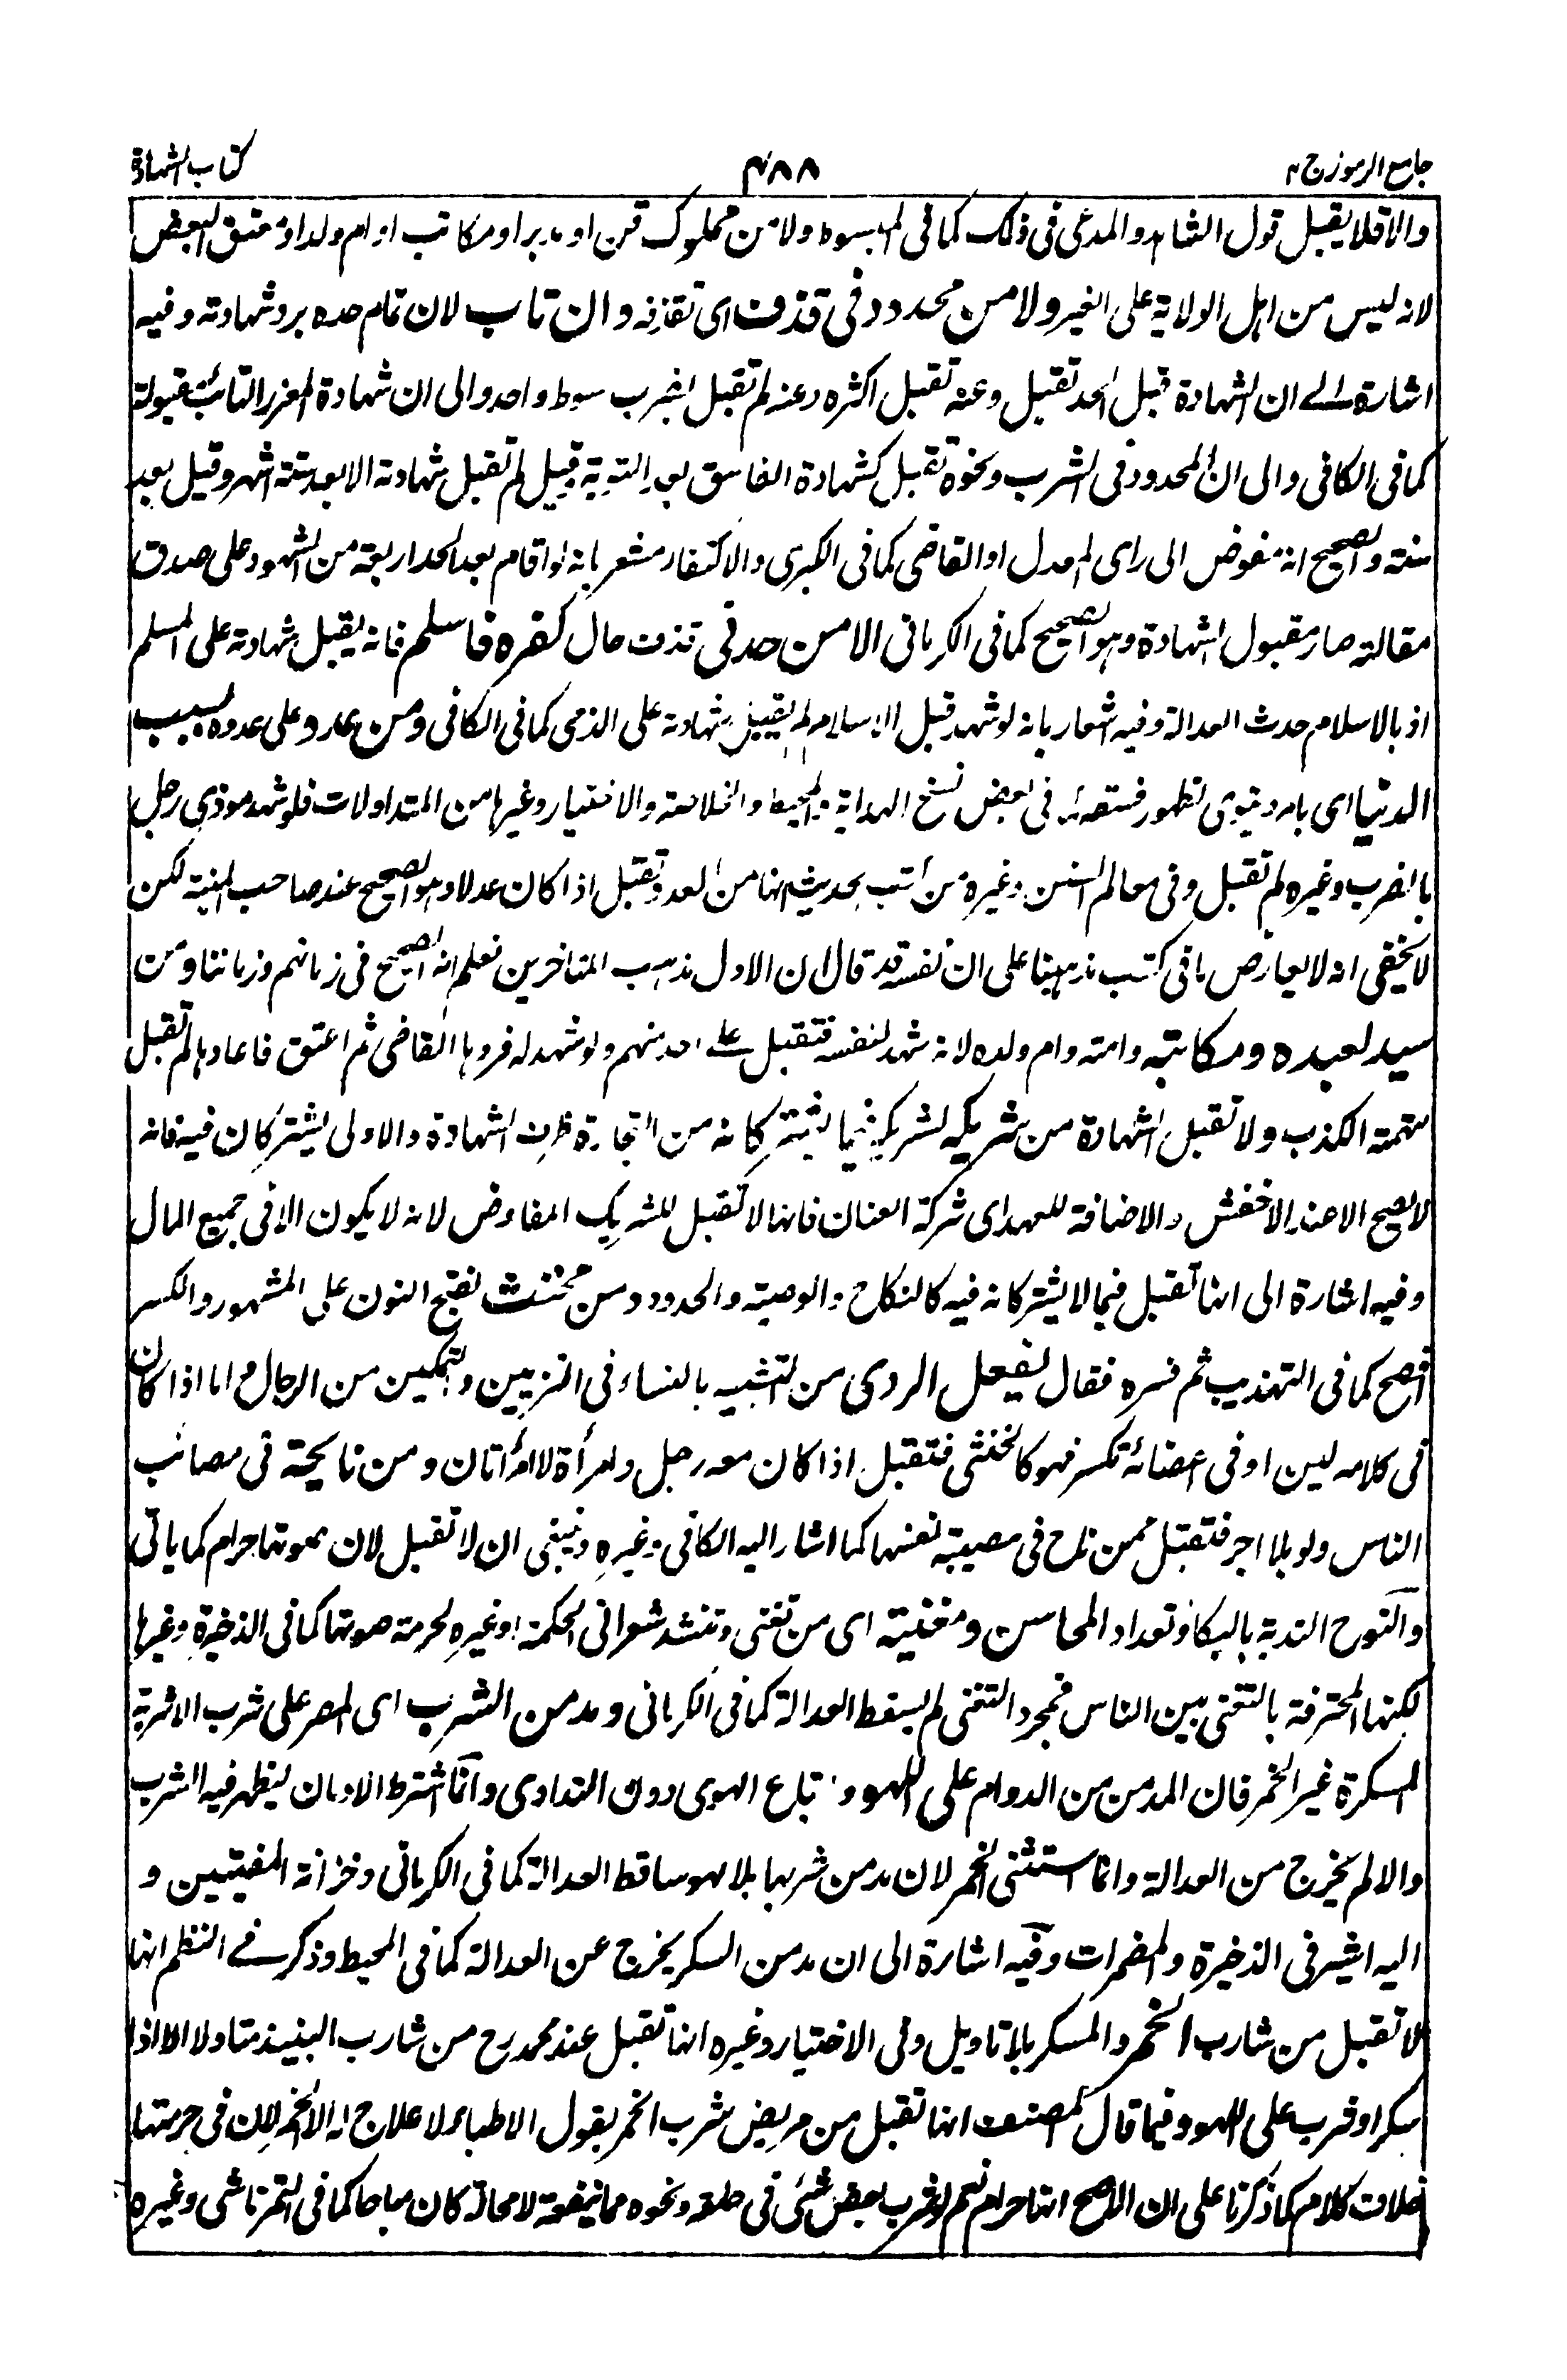 جامع الرموز ج ٢
٤٨٨
كتاب الشهادة
والا فلا يقبل قول الشاهد والمدعى فى ذلك كما فى المبسوط ولا من مملوك قن او مدبر او مكاتب او ام ولد او معتق البعض
لانه ليس من اهل الولاية على الغير ولا من محدود فى قذف اى تقاذفه وان تاب لان تمام حده برد شهادته وفيه
اشارة الى ان الشهادة قبل الحد تقبل وعنه تقبل اكثره وعنه لم تقبل بضرب سوط واحد والى ان شهادة المعزر التائب مقبولة
كما فى الكافى والى ان المحدود فى الشرب ونحوه تقبل كشهادة الفاسق بعد التوبة قيل لم تقبل شهادته الا بعد ستة اشهر وقيل بعد
سنة والصحيح انه مفوض الى راى المعدل او القاضى كما فى الكبرى والاكتفاء مشعر بانه لو اقام بعد الحد اربعة من الشهود على صدق
مقالته صار مقبول الشهادة وهو الصحيح كما فى الكرمانى الا من حد فى قذف حال كفره فاسلم فانه يقبل شهادته على المسلم
اذ بالاسلام حدث العدالة وفيه اشعار بانه لو شهد قبل الاسلام لم يقبل شهادته على الذمى كما فى الكافى ومن عدو على عدوه بسبب
الدنيا اى بامر دنيوى لظهور فسقه فى بعض نسخ الهداية والمحيط والخلاصة والاختيار وغيرها من المتداولات فلو شهد موذى رجل
بالضرب وغيره لم تقبل وفى معالم السنن وغيره من كتب الحديث انها من العدو تقبل اذا كان عدلا وهو الصحيح عند صاحب المنية لكن
لا يخفى انه لا يعارض باقى كتب مذهبنا على ان نفسه قد قال ان الاول مذهب المتاخرين فعلم انه الصحيح فى زمانهم وزماننا ومن
سيد لعبده ومكاتبه وامته وام ولده لانه شهد لنفسه فتقبل على احد منهم ولو شهد له فردها القاضى ثم اعتق فاعادها لم تقبل
لتهمة الكذب ولا تقبل الشهادة من شريك لشريكه فيما يشتركانه من التجارة ظرف الشهادة والاولى يشتركان فيه فانه
لا يصح الا عند الاخفش والاضافة للعهد اى شركة العنان فانها لا تقبل للشريك المفاوض لانه لا يكون الا فى جميع المال
وفيه اشارة الى انها تقبل فيما لا يشتركانه فيه كالنكاح والوصية والحدود ومن مخنث بفتح النون على المشهور والكسر
افصح كما فى التهذيب ثم فسره فقال يفعل الردى من التشبيه بالنساء فى التزيين والتمكين من الرجال اما اذا كان
فى كلامه لين او فى اعضائه تكسر فهو كالخنثى فتقبل اذا كان معه رجل وامرأة لا امرأتان ومن نايحة فى مصائب
الناس ولو بلا اجر فتقبل ممن ناح فى مصيبة نفسها كما اشار اليه الكافى وغيره وينبغى ان لا تقبل لان صوتها حرام كما ياتى
والنوح الندبة بالبكاء وتعداد المحاسن ومغنية اى من تغنى وتنشد شعرا فى الحكمة وغيره لحرمة صوتها كما فى الذخيرة وغيرها
لكنها المحترفة بالتغنى بين الناس فمجرد التغنى لم يسقط العدالة كما فى الكرمانى ومدمن الشرب اى المصر على شرب الاشربة
المسكرة غير الخمر فان المدمن من الدوام على اللهو واتباع الهوى دون التداوى وانما اشترط الادمان ليظهر فيه الشرب
والا لم يخرج من العدالة وانما استثنى الخمر لان مدمن شربها بلا لهو ساقط العدالة كما فى الكرمانى وخزانة المفتيين و
اليه اشير فى الذخيرة والمضمرات وفيه اشارة الى ان مدمن السكر يخرج عن العدالة كما فى المحيط وذكر فى النظم انها
لا تقبل من شارب الخمر والمسكر بلا تاويل وفى الاختيار وغيره انها تقبل عند محمد رح من شارب النبيذ متاولا الا اذا
سكر او شرب على اللهو وفيما قال المصنف انها تقبل من مريض شرب الخمر بقول الاطباء لا علاج له الا الخمر لان فى حرمتها
خلاف كلام كما ذكرنا على ان الاصح انها حرام نعم لو شرب لعض شئ فى حلقه ونحوه مما ينفعه لا محالة كان مباحا كما فى التمرتاشى وغيره